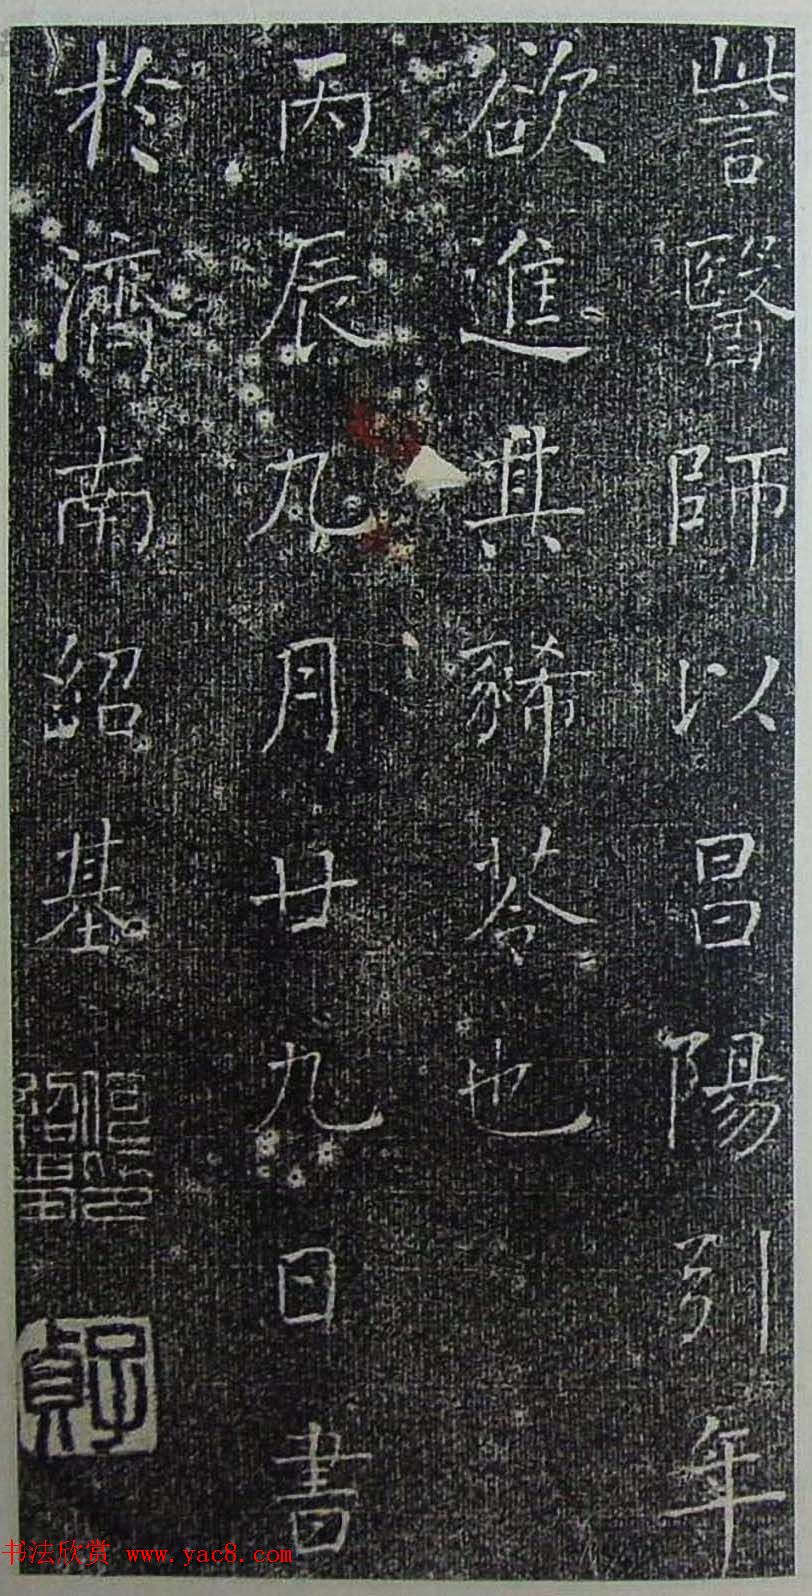 訾醫師以昌陽引年
欲進其豨苓也
丙辰九月廿九日書
於濟南紹基
子貞
书法欣赏 www.yac8.com